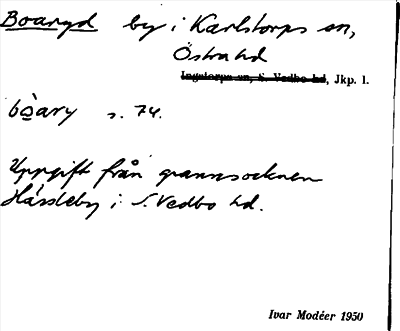 Boaryd by i Karlstorps sn,
Östra hd
Ingatorps sn, S. Vedbo hd, Jkp. l.
bòary s. 74.
Uppgift från grannsocknen
Hässleby i S. Vedbo hd.
Ivar Modéer 1950